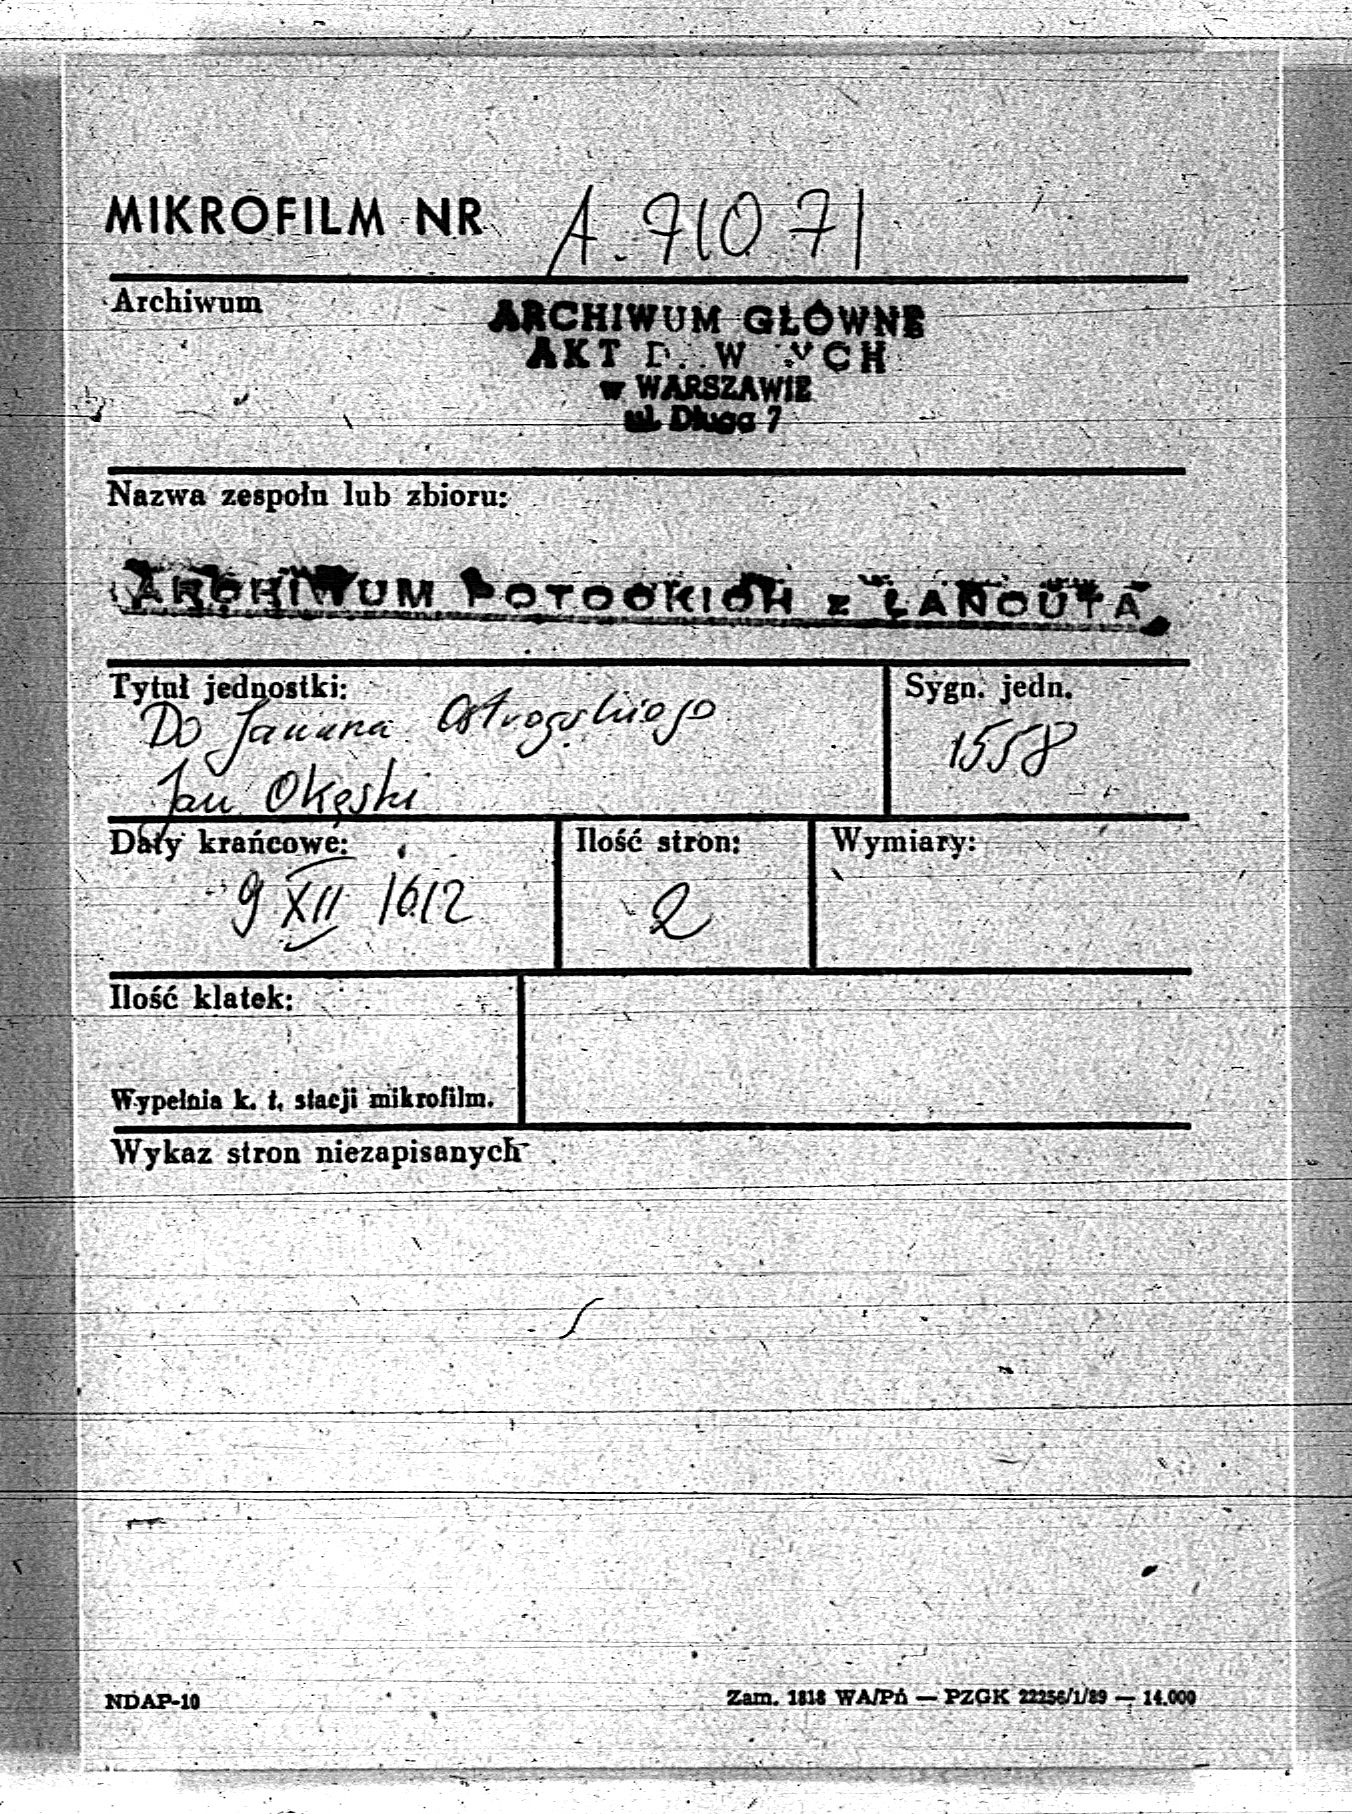 MIKROFILM NR A. 71071
Archiwum
ARCHIWUM GŁÓWNE
AKT D W YCH
w WARSZAWIE
ul. Długa 7
Nazwa zespołu lub zbioru:
ARCHIWUM POTOCKICH z ŁAŃCUTA
Tytuł jednostki:
Do Janusza Ostrogskiego
Jan Okęski
Sygn. jedn.
1558
Daty krańcowe:
9 XII 1612
Ilość stron:
2
Wymiary:
Ilość klatek:
Wypełnia k. t. stacji mikrofilm.
Wykaz stron niezapisanych
NDAP-10
Zam. 1818 WA/Pń — PZGK 22256/1/89 — 14.000